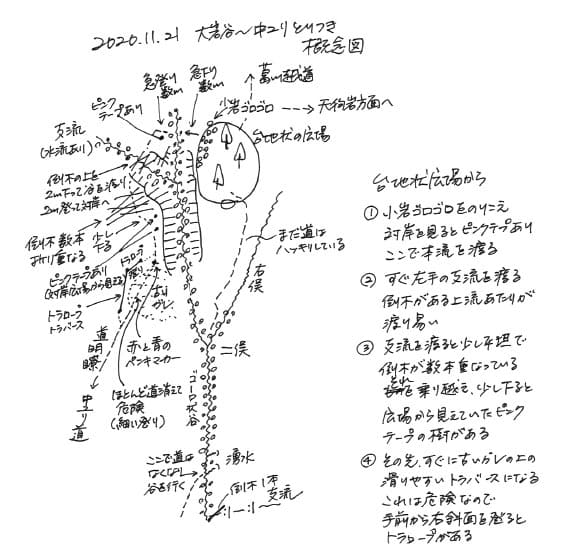 2020.11.21 大岩谷〜中ユリとりつき
概念図
急登り
数m
急下り
数m
葛川越道
ピンク
テープあり
小岩ゴロゴロ
天狗岩方面へ
台地状の広場
支流
(水流あり)
倒木の上を
2m下って谷を渡り
2m登って対岸へ
倒木数本 少し
折り重なる
ピンクテープあり
(対岸広場から見える)
トラロープ
トラバース
古い
ガレ
まだ道は
ハッキリしている
右俣
二俣
赤と青の
ペンキマーカー
道明瞭
中ユリ道
ほとんど道消えて
危険
(細い登り)
ゴーロ状谷
ここで道は
なくなり
谷を行く
湧水
倒木1本
支流
台地状広場から
① 小岩ゴロゴロをのりこえ
対岸を見るとピンクテープあり
ここで本流を渡る
② すぐ左手の支流を渡る
倒木がある上流あたりが
渡り易い
③ 支流を渡ると少し平坦で
倒木が数本重なっている
それを乗り越え、少し下ると
広場から見えていたピンク
テープの樹がある
④ その先、すぐに古いガレの上の
滑りやすいトラバースになる
これは危険なので
手前から右斜面を登ると
トラロープがある